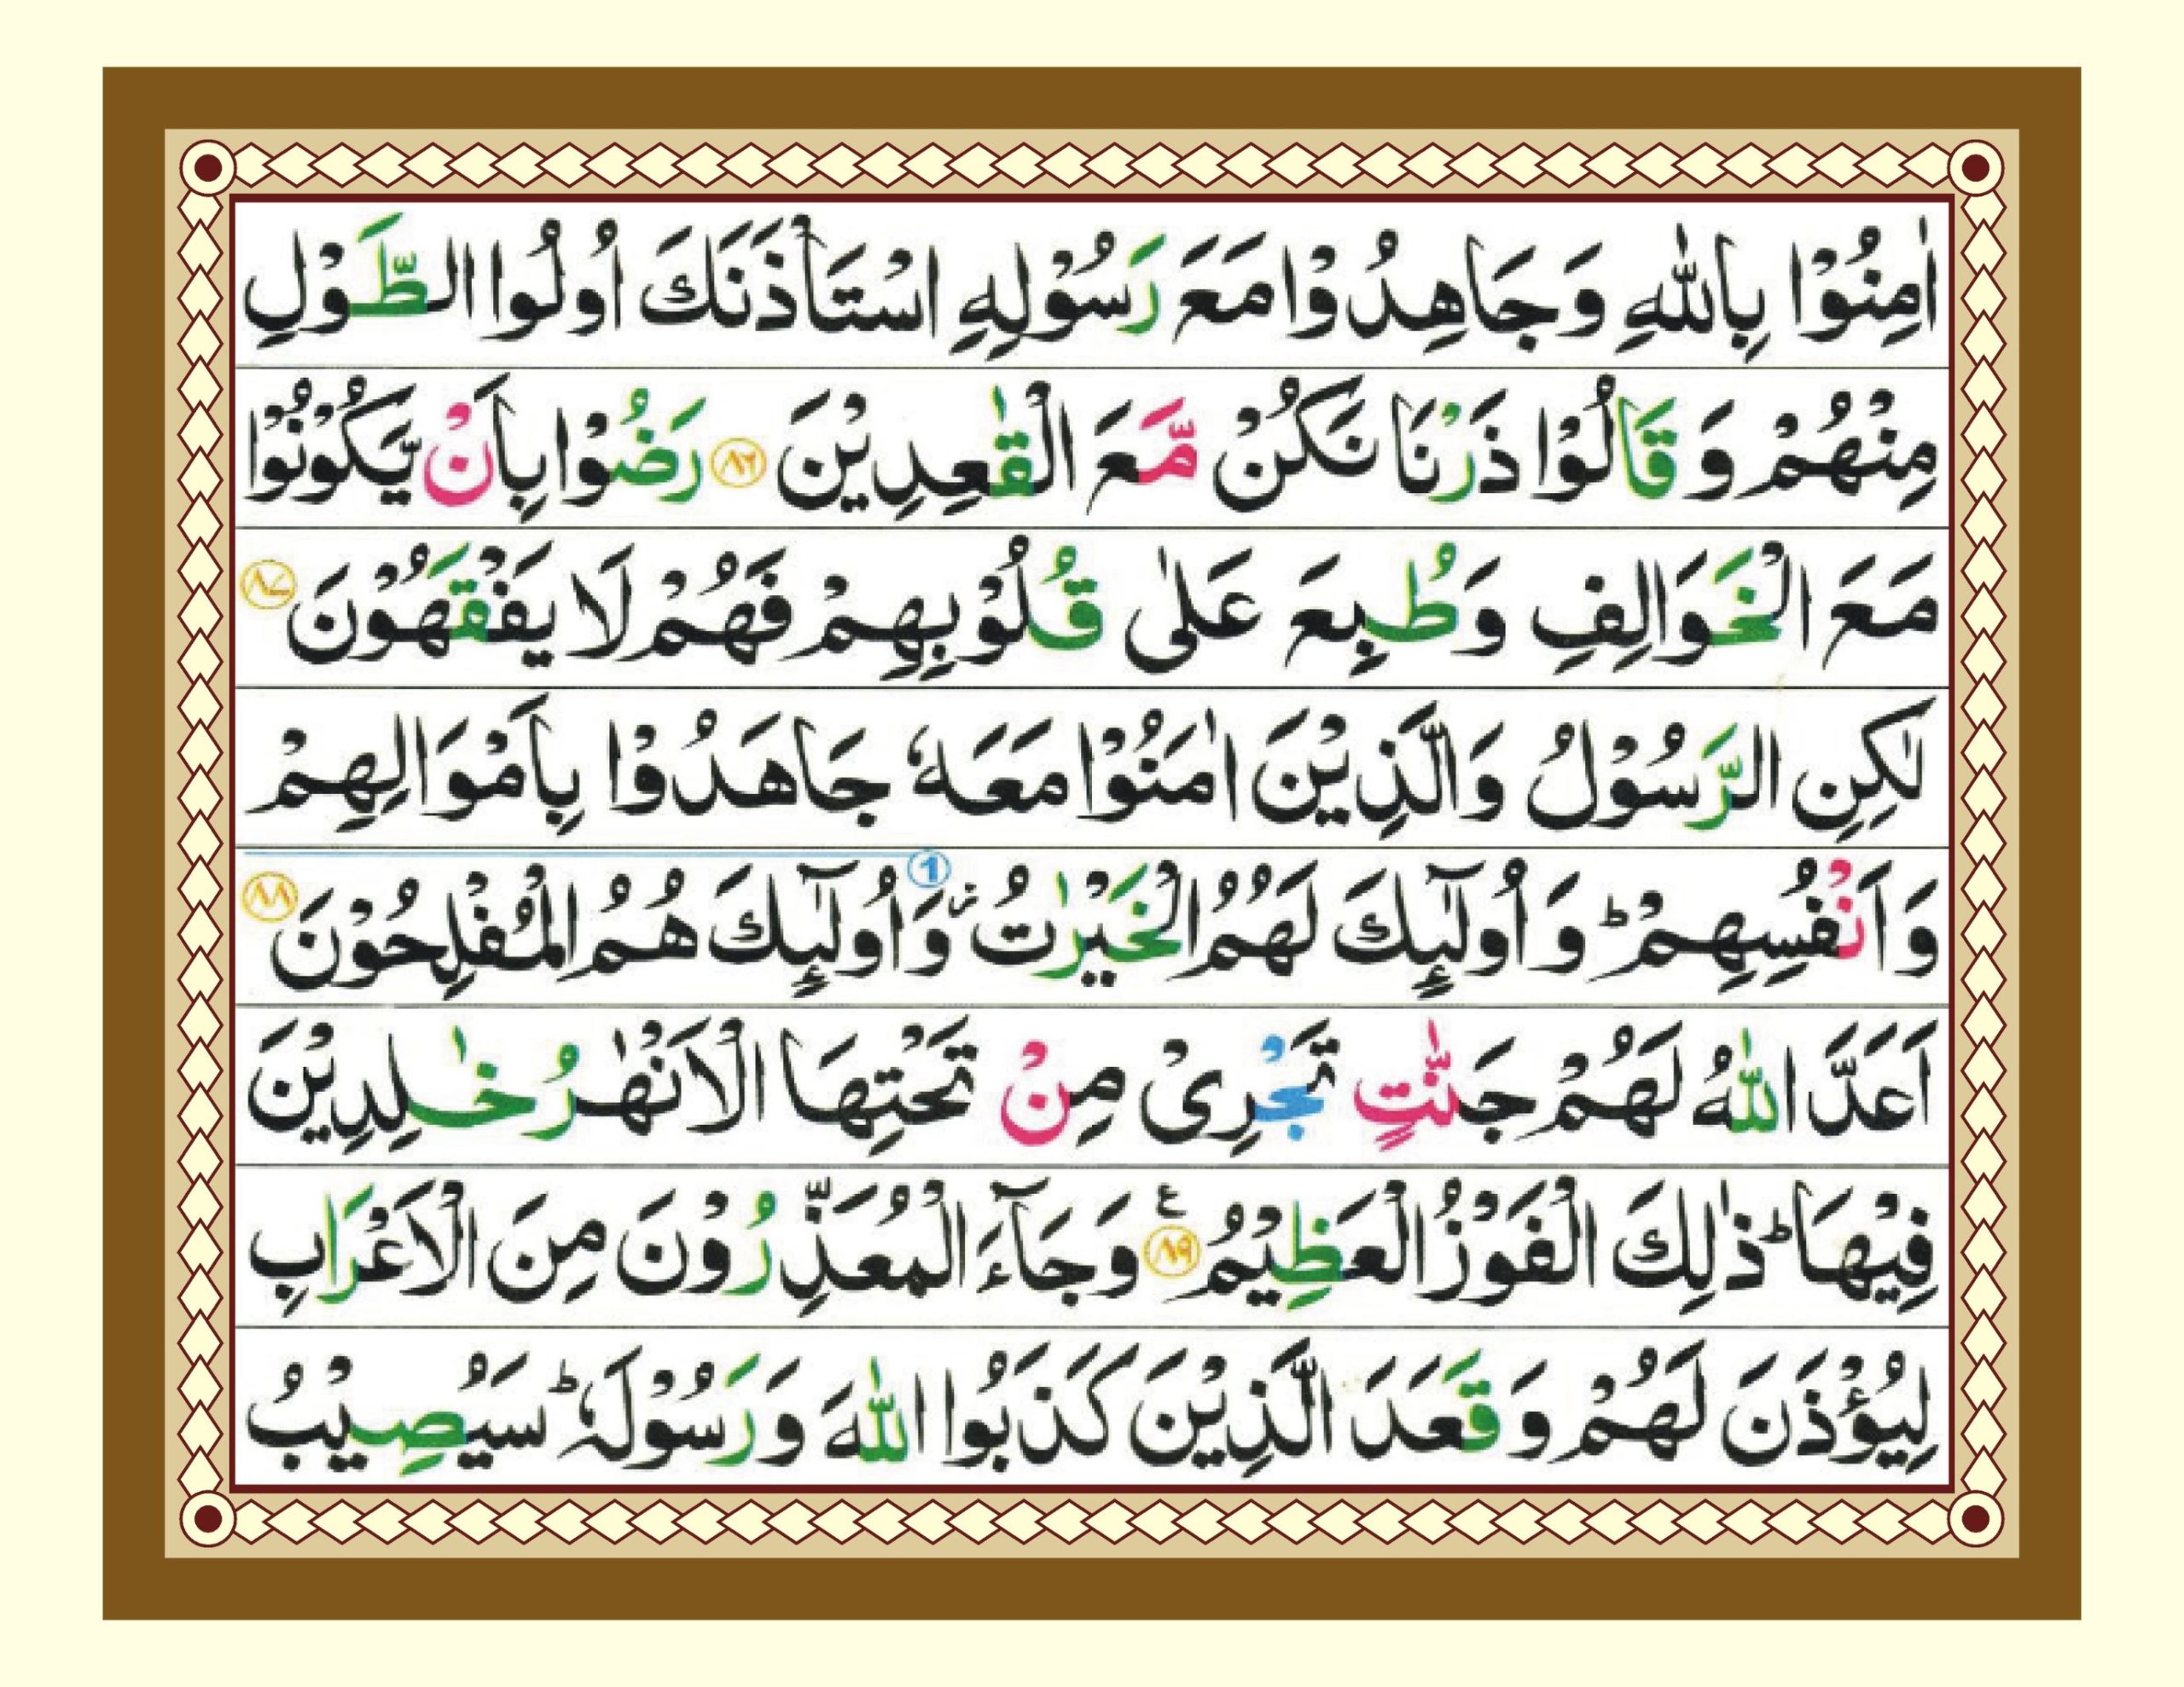 اٰمِنُوْا بِاللّٰهِ وَجَاهِدُوْا مَعَ رَسُوْلِهِ اسْتَاْذَنَكَ اُولُوا الطَّوْلِ
مِنْهُمْ وَ قَالُوْا ذَرْنَا نَكُنْ مَّعَ الْقٰعِدِيْنَ ﴿۸۶﴾ رَضُوْا بِاَنْ يَّكُوْنُوْا
مَعَ الْخَوَالِفِ وَطُبِعَ عَلٰى قُلُوْبِهِمْ فَهُمْ لَا يَفْقَهُوْنَ ﴿۸۷﴾
لٰكِنِ الرَّسُوْلُ وَالَّذِيْنَ اٰمَنُوْا مَعَهٗ جَاهَدُوْا بِاَمْوَالِهِمْ
وَاَنْفُسِهِمْ ؕ وَاُولٰٓئِكَ لَهُمُ الْخَيْرٰتُ ؗ وَاُولٰٓئِكَ هُمُ الْمُفْلِحُوْنَ ﴿۸۸﴾ 1
اَعَدَّ اللّٰهُ لَهُمْ جَنّٰتٍ تَجْرِىْ مِنْ تَحْتِهَا الْاَنْهٰرُ خٰلِدِيْنَ
فِيْهَا ؕ ذٰلِكَ الْفَوْزُ الْعَظِيْمُ ﴿۸۹﴾ ع وَجَآءَ الْمُعَذِّرُوْنَ مِنَ الْاَعْرَابِ
لِيُؤْذَنَ لَهُمْ وَقَعَدَ الَّذِيْنَ كَذَبُوا اللّٰهَ وَرَسُوْلَهٗ ؕ سَيُصِيْبُ